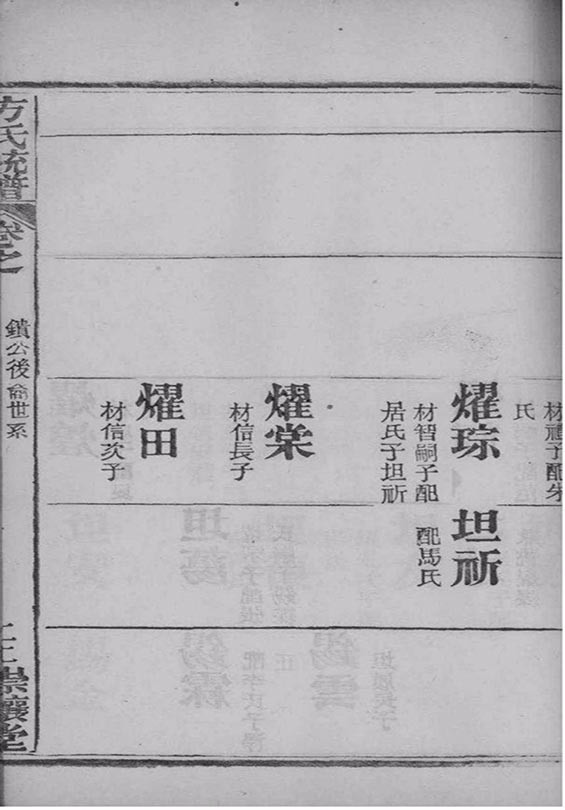 材禮子配朱
氏
燿琮
材智嗣子配
居氏子坦祈
坦祈
配馬氏
燿棠
材信長子
燿田
材信次子
方氏統譜
卷之
鎮公後俞世系
崇讓堂